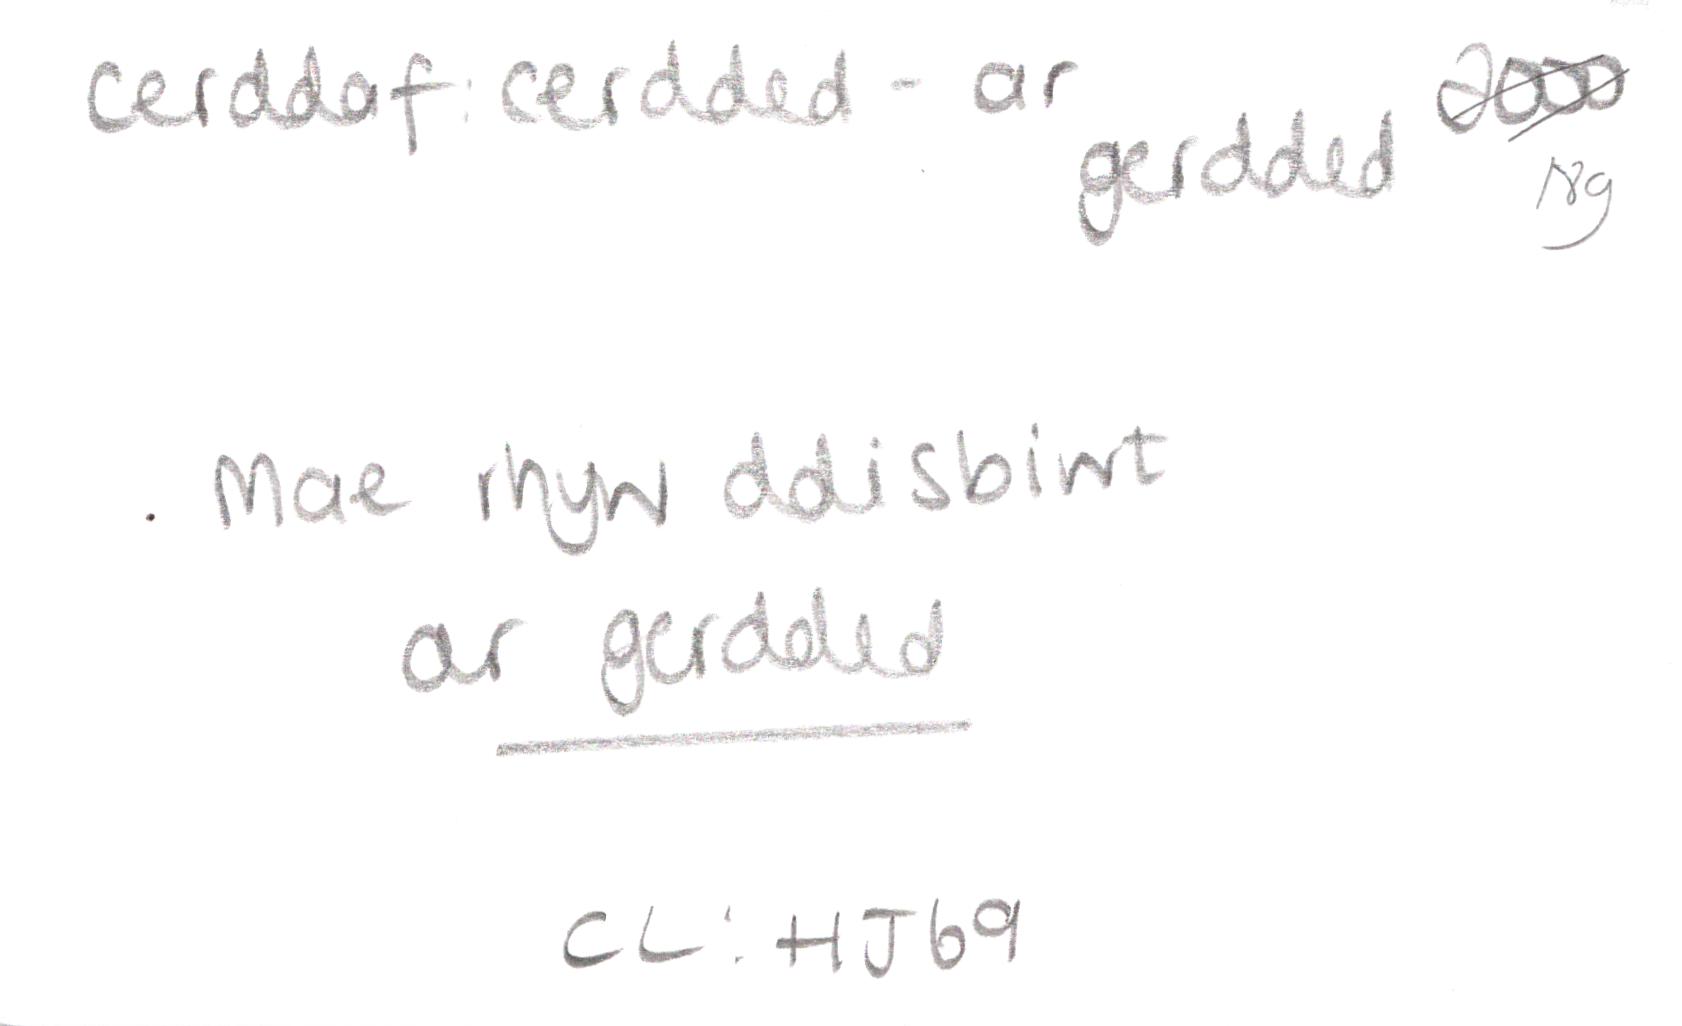 cerddaf: cerdded - ar
gerdded
2000
Mae rhyw ddisbiwt
ar gerdded
CL: HJ69